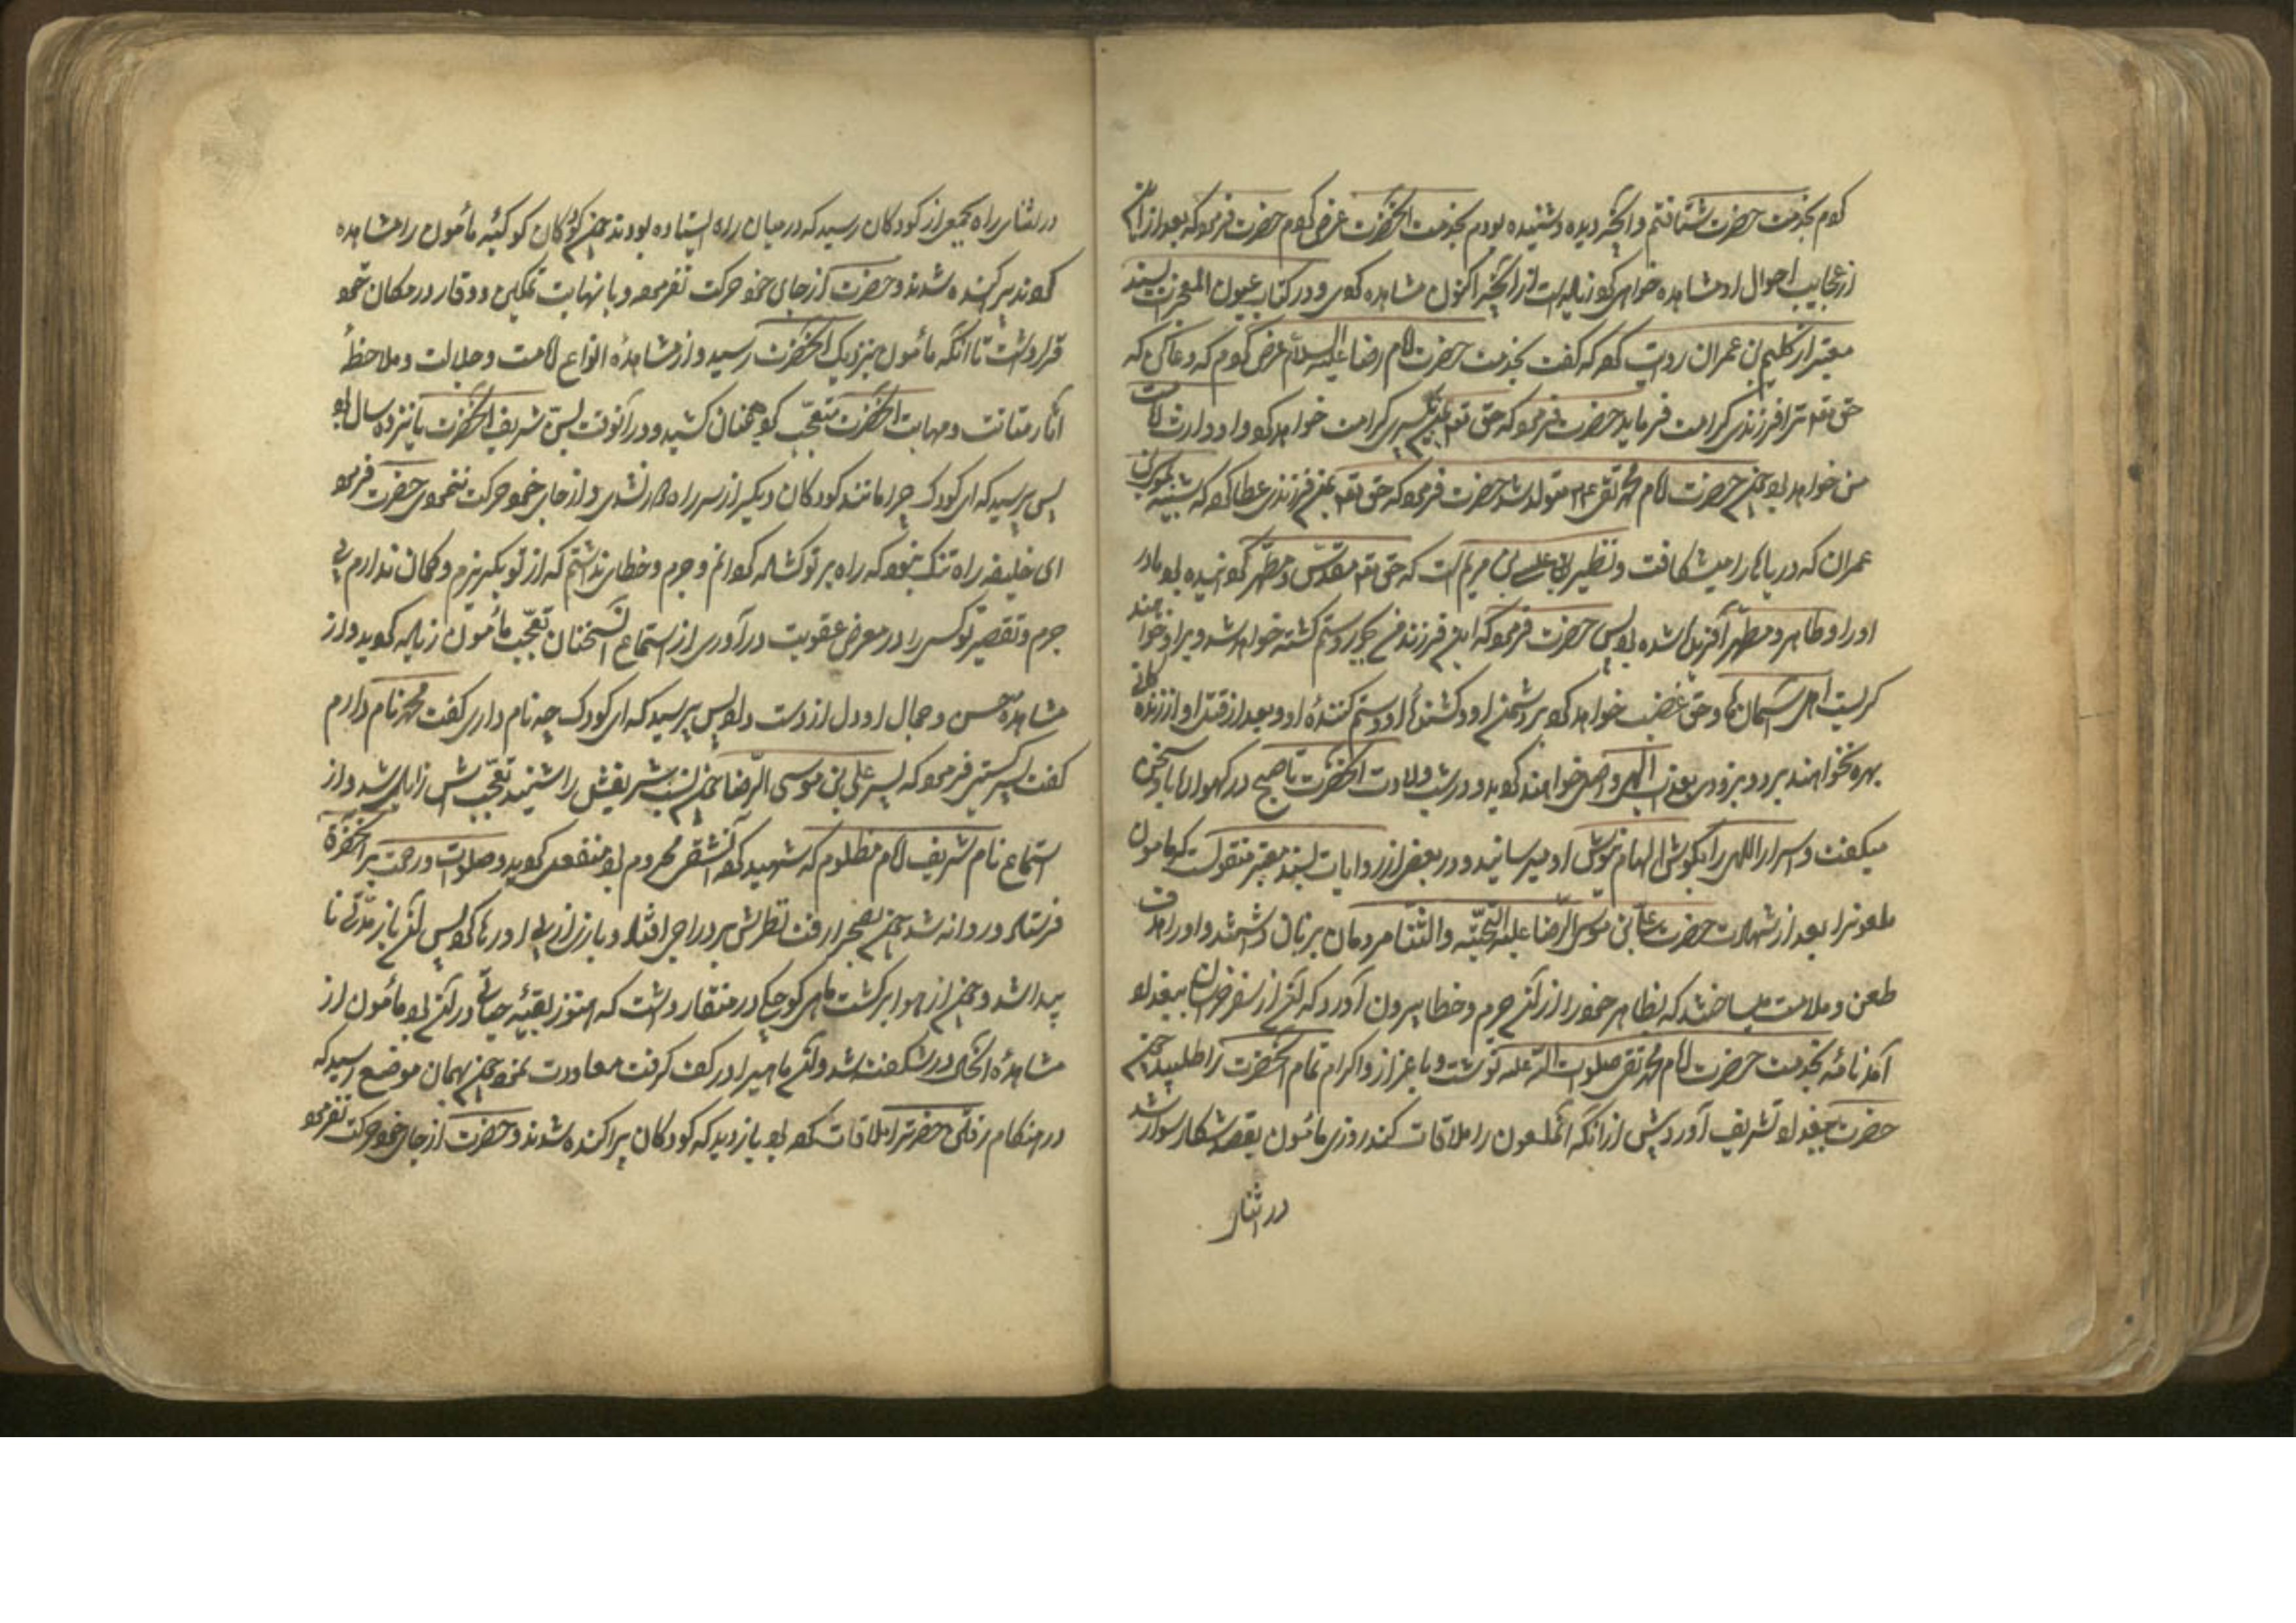 کردم بخدمت حضرت شتافتم و آنچه دیده و شنیده بودم بخدمت آنحضرت عرض کردم حضرت فرمود که بعد ازین
از عجایب احوال او مشاهده خواهی کرد زیاده است از آنچه اکنون مشاهده کردی و در کتاب عیون المعجزات بسند
معتبر از کلیم بن عمران روایت کرده که گفت بخدمت حضرت امام رضا علیه السلام عرض کردم که دعا کن که
حق تعه ترا فرزندی کرامت فرماید حضرت فرمود که حق تعه بمن یک پسری کرامت خواهد کرد و او وارث امامت
من خواهد بود چون حضرت امام محمد تقی ع م متولد شد حضرت فرمود که حق تعه بمن فرزندی عطا کرد که شبیه بموسی بن
عمران که دریاها را میشکافت و نظیر عیسی بن مریم است که حق تعه مقدس و مطهر گردانیده بود مادر
او را و طاهر و مطهر آفریده شده بود پس حضرت فرمود که این فرزند من بجور و ستم کشته خواهد شد و بر او خواهند
گریست اهل آسمان ها و حق تعه غضب خواهد کرد بر دشمن او و کشنده او و ستم کننده او و بعد از قتل او از زندگانی
بهره نخواهند برد و بزودی بعذاب الهی واصل خواهند گردید و در شب ولادت آنحضرت تا صبح در گهواره با او سخن
میگفت و اسرار الهی را بگوش الهام نیوش او میرسانید و در بعضی از روایات بسند معتبر منقولست که مامون
ملعونرا بعد از شهادت حضرت علی بن موسی الرضا علیه التحیه والثنا مردمان بر زبان داشتند و او را هدف
طعن و ملامت میساختند که بظاهر خود را از آن جرم و خطا بیرون آورد که آن از سفر خراسان ببغداد
آمد نامهٔ بخدمت حضرت امام محمد تقی صلوات الله علیه نوشت و با عزاز و اکرام تمام آنحضرت را طلبید چون
حضرت ببغداد تشریف آورد پیش از آنکه آنملعون را ملاقات کند روزی مأمون بقصد شکار سوار شد
در اثنای
در اثنای راه بجمعی از کودکان رسید که در میان راه ایستاده بودند چون کودکان کوکبهٔ مأمون را مشاهده
کردند پراکنده شدند و حضرت از جای خود حرکت نفرمود و با نهایت تمکین و وقار در مکان خود
قرار داشت تا آنکه مأمون بنزدیک آنحضرت رسید و از مشاهدهٔ انواع امامت و جلالت و ملاحظهٔ
آثار متانت و مهابت آنحضرت متعجب گردید عنان کشید و در آنوقت سن شریف آنحضرت یانزده سال بود
پس پرسید که ای کودک چرا مانند کودکان دیگر از سر راه دور نشدی و از جای خود حرکت ننمودی حضرت فرمود
ای خلیفه راه تنگ نبود که راه بر تو گشاده گردانم و جرم و خطا نداشتم که از تو بگریزم و گمان ندارم بی
جرم و تقصیر تو کسی را در معرض عقوبت در آوری از استماع آنسخنان تعجب مأمون زیاده گردید و از
مشاهدهٔ حسن و جمال او دل از دست داد پس پرسید که ای کودک چه نام داری گفت محمد نام دارم
گفت پسر کیستی فرمود که پسر علی بن موسی الرضا چون نسب شریفش را شنید تعجبش زایل شد و از
استماع نام شریف امام مظلوم که شهید کرد آنشقی محروم بود منفعل گردید و صلوات و رحمت بر آنحضرة
فرستاد و روانه شد چون بصحرا رفت نظرش بر دراجی افتاد و بازی از پی او رها کرد پس آن باز مدتی نا
پیدا شد و چون از هوا برگشت ماهی کوچکی در منقار داشت که هنوز بقیهٔ حیاتی در آن بود مأمون از
مشاهدهٔ آنحال در شگفت شد و آن ماهی را در کف گرفت معاودت نمود چون بهمان موضع رسید که
در هنگام رفتن حضرترا ملاقات کرده بود باز دید که کودکان پراکنده شدند و حضرت از جای خود حرکت نفرمود